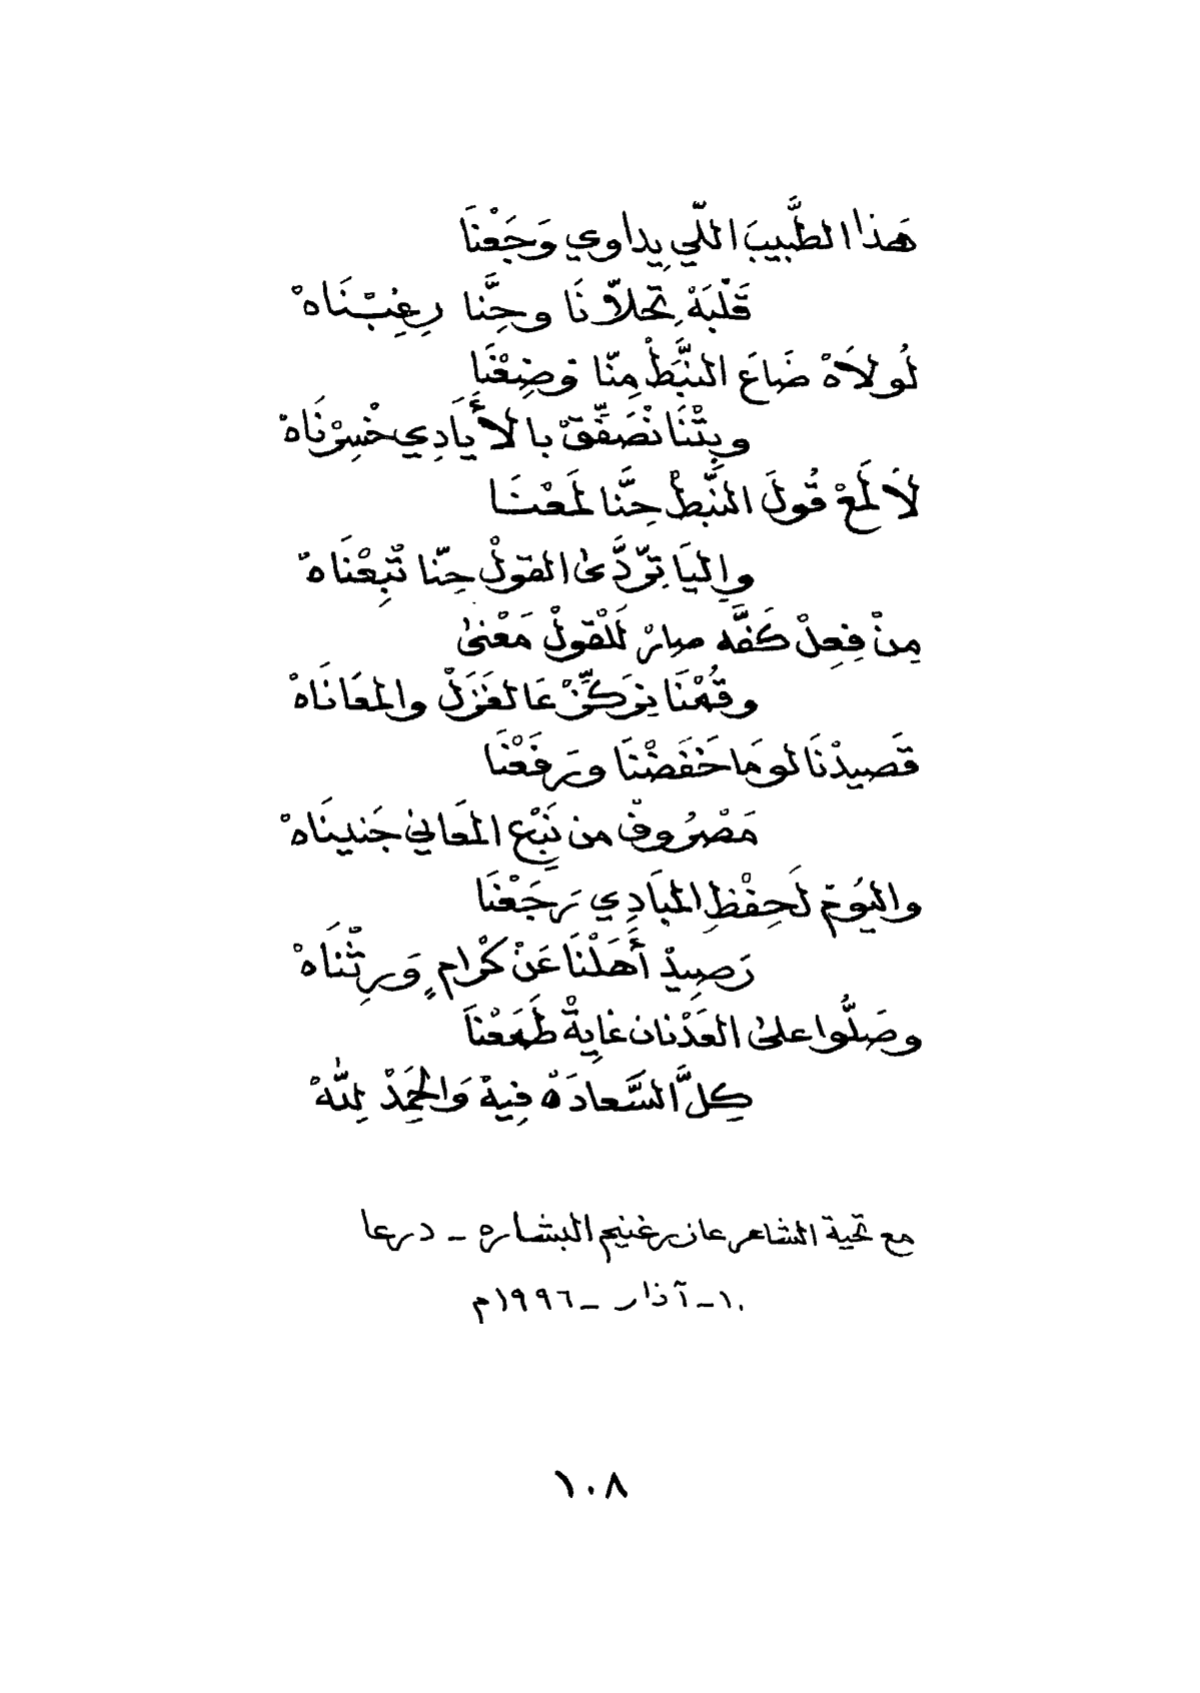 هَذا الطَّبيبَ اللّي يِداوي وَجَعْنَا
قَلْبَهْ تِحلاّ نَا وحِنَّا رِغِبْنَاهْ
لُولاَهْ ضَاعَ النَّبَطْ مِنّا وْضِعْنَا
وبِتْنَا نْصَفِّقْ بالأَيَادِي خْسِرْنَاهْ
لاَ لمَعْ قُولَ النَّبَطْ حِنَّا لمَعْنَا
وإليَا تِرَّدَّىٰ القولْ حِنّا تْبِعْنَاهْ
مِنْ فِعِلْ كَفَّه صارْ لَلْقولْ مَعْنىٰ
وقُمْنَا نِرَكِّزْ عَالغَزَلْ والمعَانَاهْ
قَصيدْنَا لو مَا خَفَضْنَا ورَفَعْنَا
مَصْرُوفْ من نَبْعِ المعَاني جَنينَاهْ
واليَومْ لَحِفْظِ المبَادِي رَجَعْنَا
رَصِيدْ أَهَلْنَا عَنْ كْرامٍ وَرِثْنَاهْ
وصَلُّوا علىٰ العَدْنان غايةْ طَمَعْنَا
كِلَّ السَّعادَهْ فِيهْ وَالحَمِدْ لِلّٰهْ
مع تحية الشاعر عازر غنيم البشاره - درعا
١٠- آذار - ١٩٩٦م
١٠٨